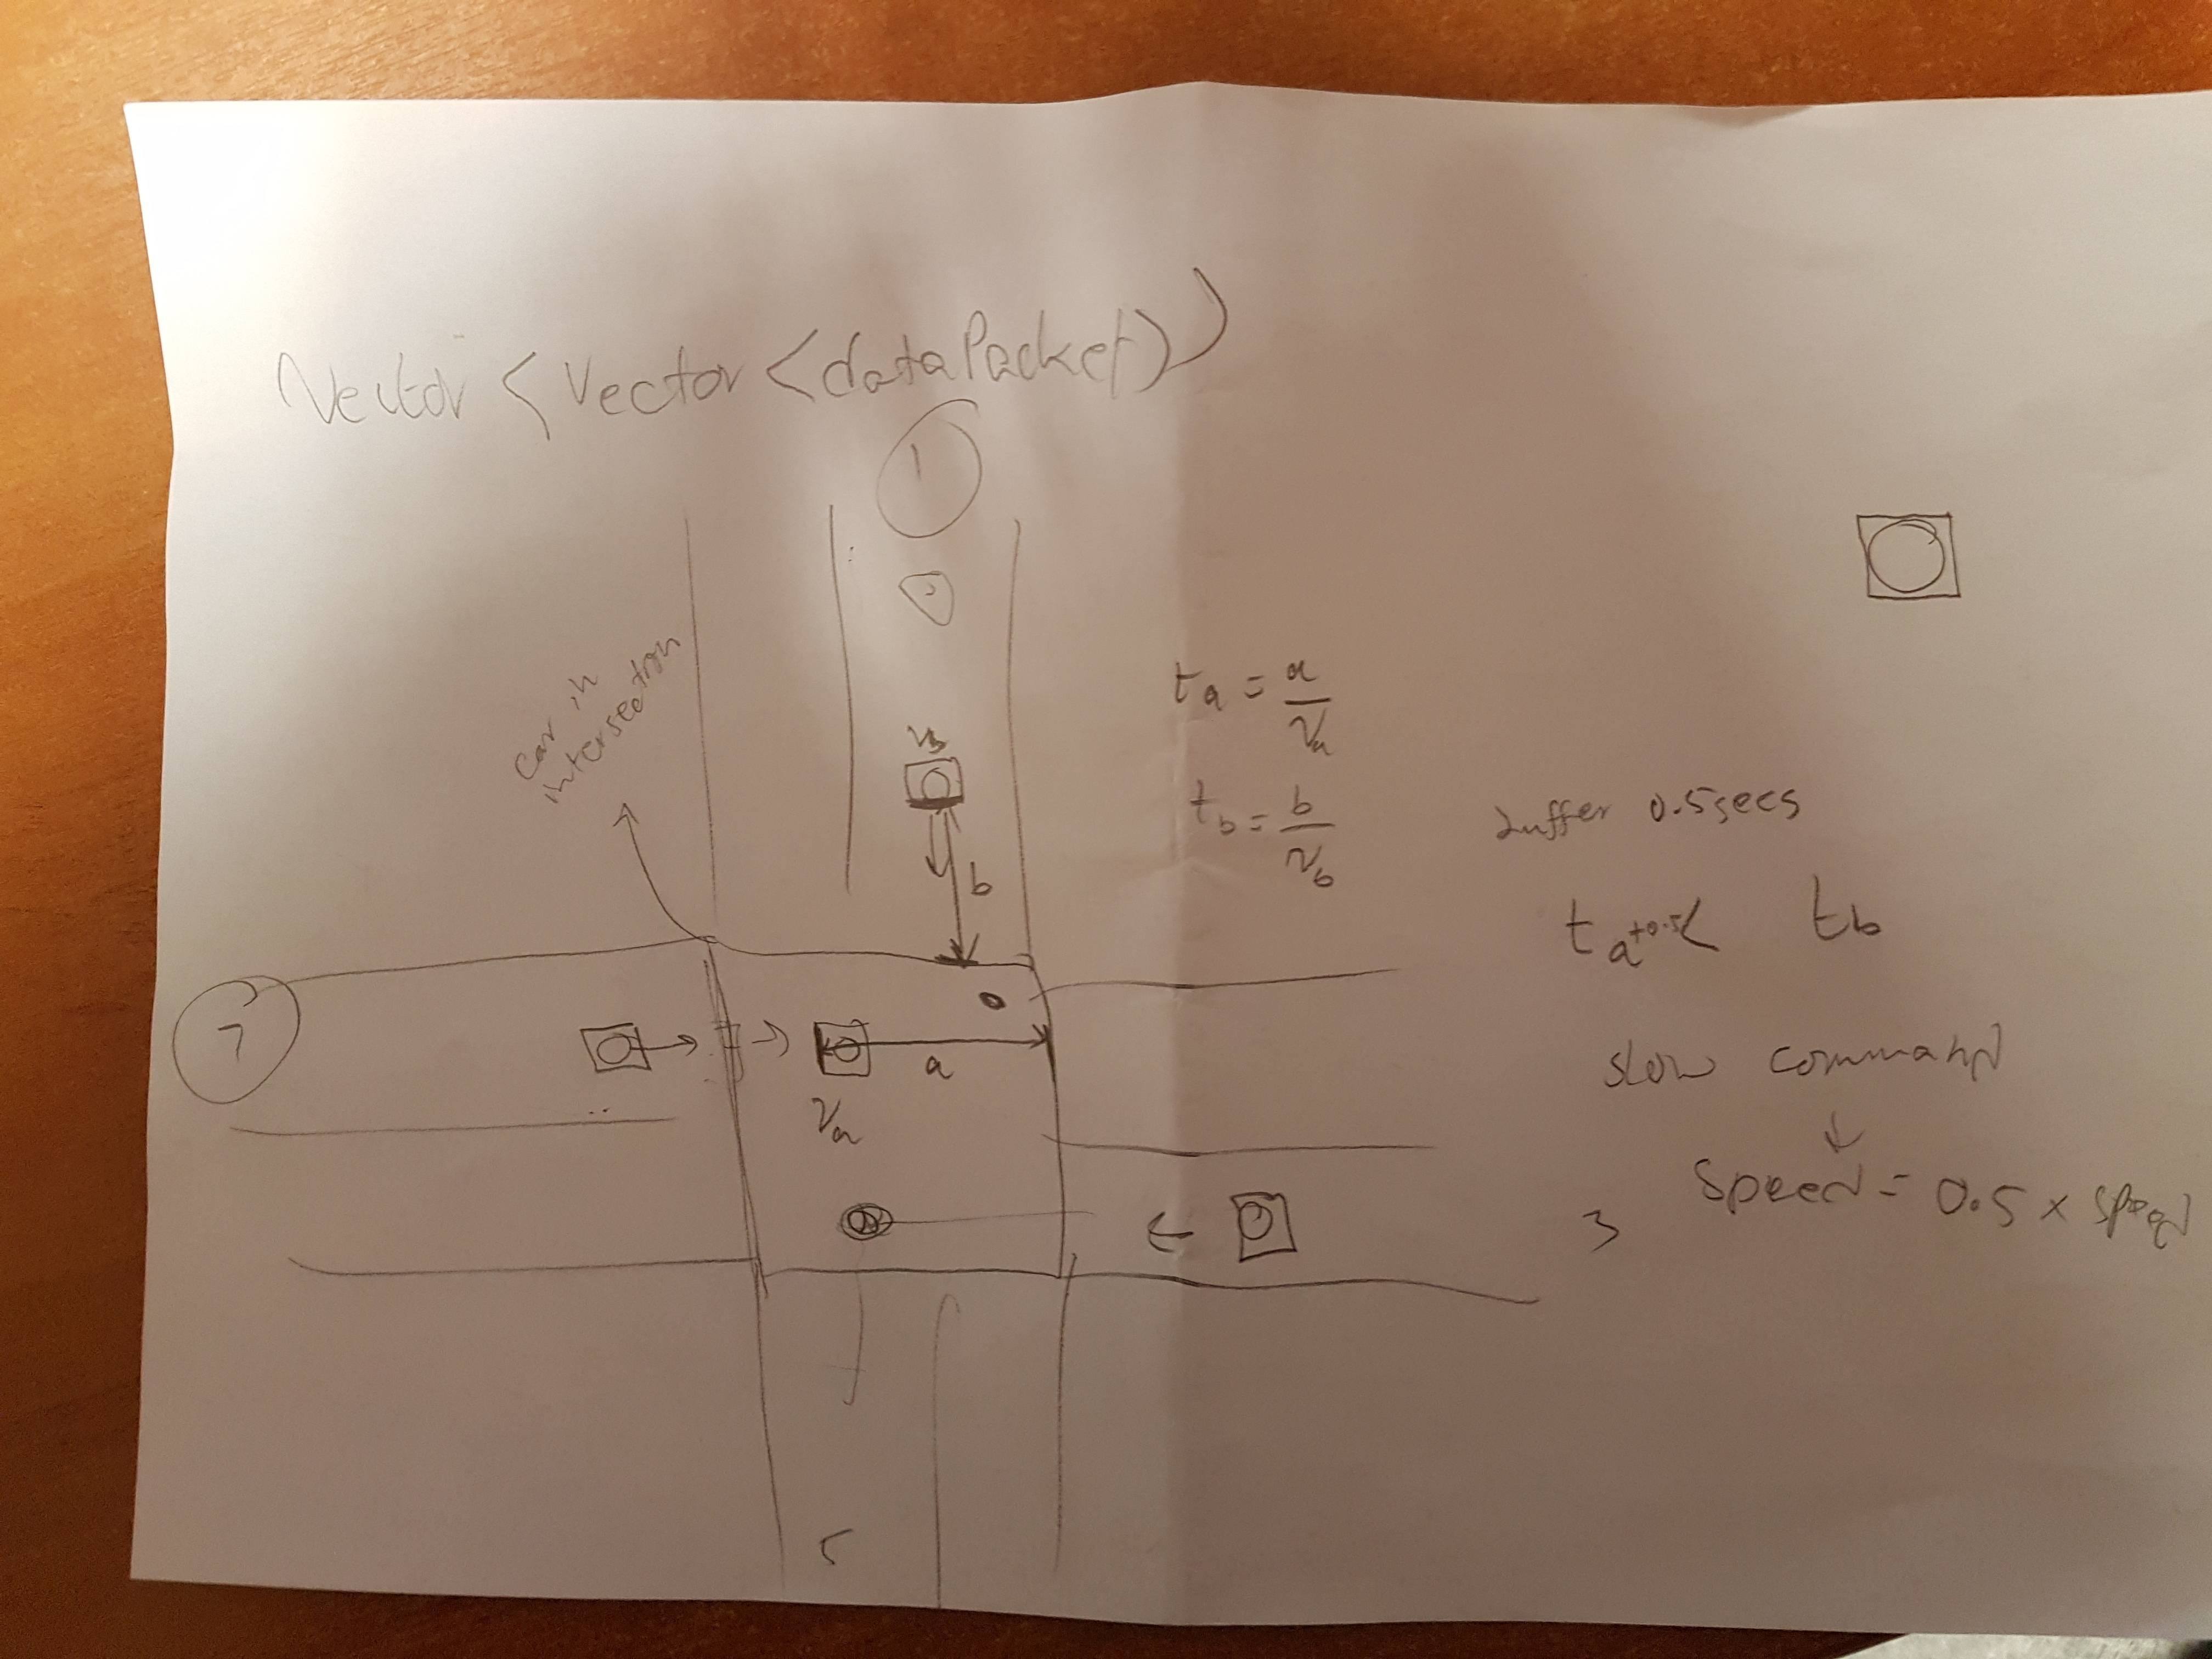 Vector < Vector < dataPacket ) )
1
car in
intersection
t_a = a / V_a
V_b
t_b = b / V_b
buffer 0.5secs
b
t_a +0.5 < t_b
7
a
slow command
V_a
Speed = 0.5 x speed
3
5